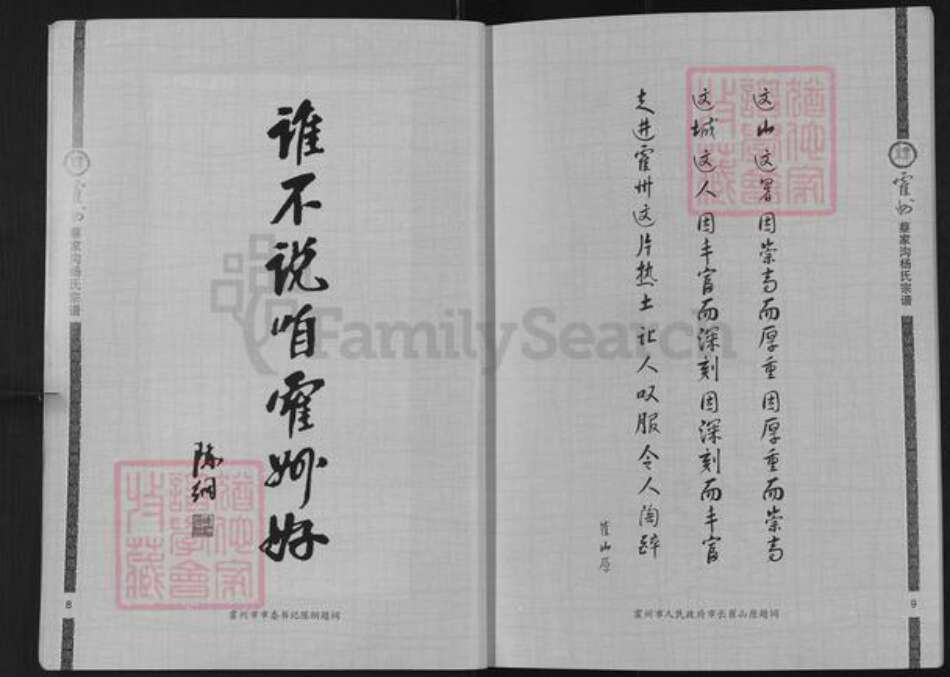 谁不说咱霍州好
陈纲
霍州市市委书记陈纲题词
霍州
蔡家沟杨氏宗谱
8
这山这署因崇高而厚重因厚重而崇高
这城这人因丰富而深刻因深刻而丰富
走进霍州这片热土让人叹服令人陶醉
崔山原
霍州市人民政府市长崔山原题词
霍州
蔡家沟杨氏宗谱
9
猶他家
譜學會
收藏
猶他家
譜學會
收藏
FamilySearch